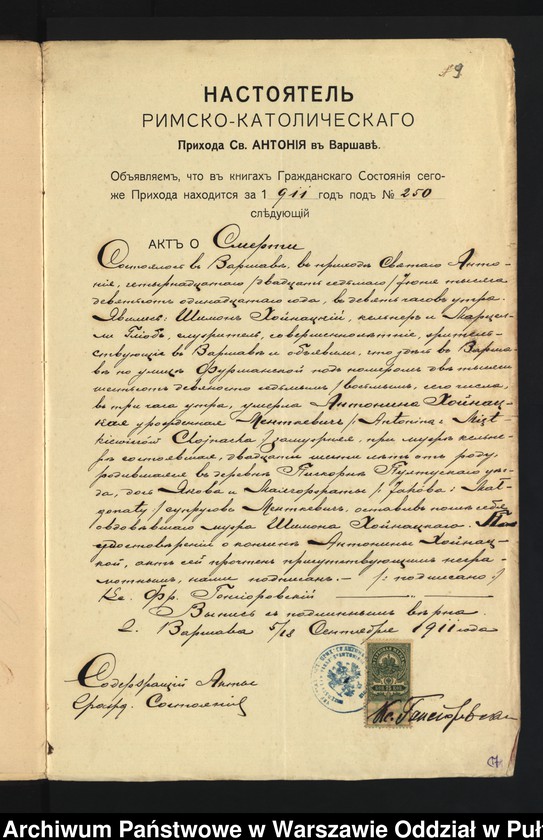 9
НАСТОЯТЕЛЬ
РИМСКО-КАТОЛИЧЕСКАГО
Прихода Св. АНТОНІЯ въ Варшавѣ.
Объявляемъ, что въ книгахъ Гражданскаго Состоянія сего-
же Прихода находится за 1911 годъ подъ № 250
слѣдующій
АКТЪ О Смерти
Состоялось въ Варшавѣ, въ приходѣ Святаго Анто-
нія, четырнадцатаго /двадцать седьмаго/ Іюня тысяча
девятьсотъ одиннадцатаго года, въ девять часовъ утра.
Явились: Шимонъ Хойнацкій, кельнеръ и Марцел-
ли, смотритель, совершеннолѣтніе, житель-
ствующіе въ Варшавѣ и объявили, что здѣсь въ Варша-
вѣ по улицѣ Фурманской подъ номеромъ двѣ тысячи
шестьсотъ девяносто седьмымъ /восьмымъ, сего числа,
въ три часа утра, умерла Антонина Хойнац-
кая урожденная Менткевичъ /Antonina z Mięt-
kiewiczów Chojnacka/ замужняя, при мужѣ кельне-
рѣ состоявшая, двадцати шести лѣтъ отъ роду,
родившаяся въ деревнѣ Пискорня Пултускаго уѣз-
да, дочь Якова и Малгоржаты /Jakóba i Mał-
gorzaty/ супруговъ Менткевичъ, оставивъ послѣ себя
овдовѣвшаго мужа Шимона Хойнацкаго. По
удостовѣреніи о кончинѣ Антонины Хойнац-
кой, актъ сей прочтенъ присутствующимъ негра-
мотнымъ, нами подписанъ. – /: подписано :/
Кс. Фр. Гонсіоровскій
Выпись съ подлиннымъ вѣрна.
г. Варшава 5/18 Сентября 1911 года
Содержащій Акты
Гражд. Состоянія
Кс. Гонсіоровскій
Archiwum Państwowe w Warszawie Oddział w Puł